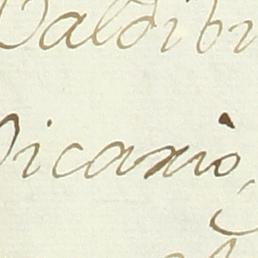 Valdibi
Vicario,